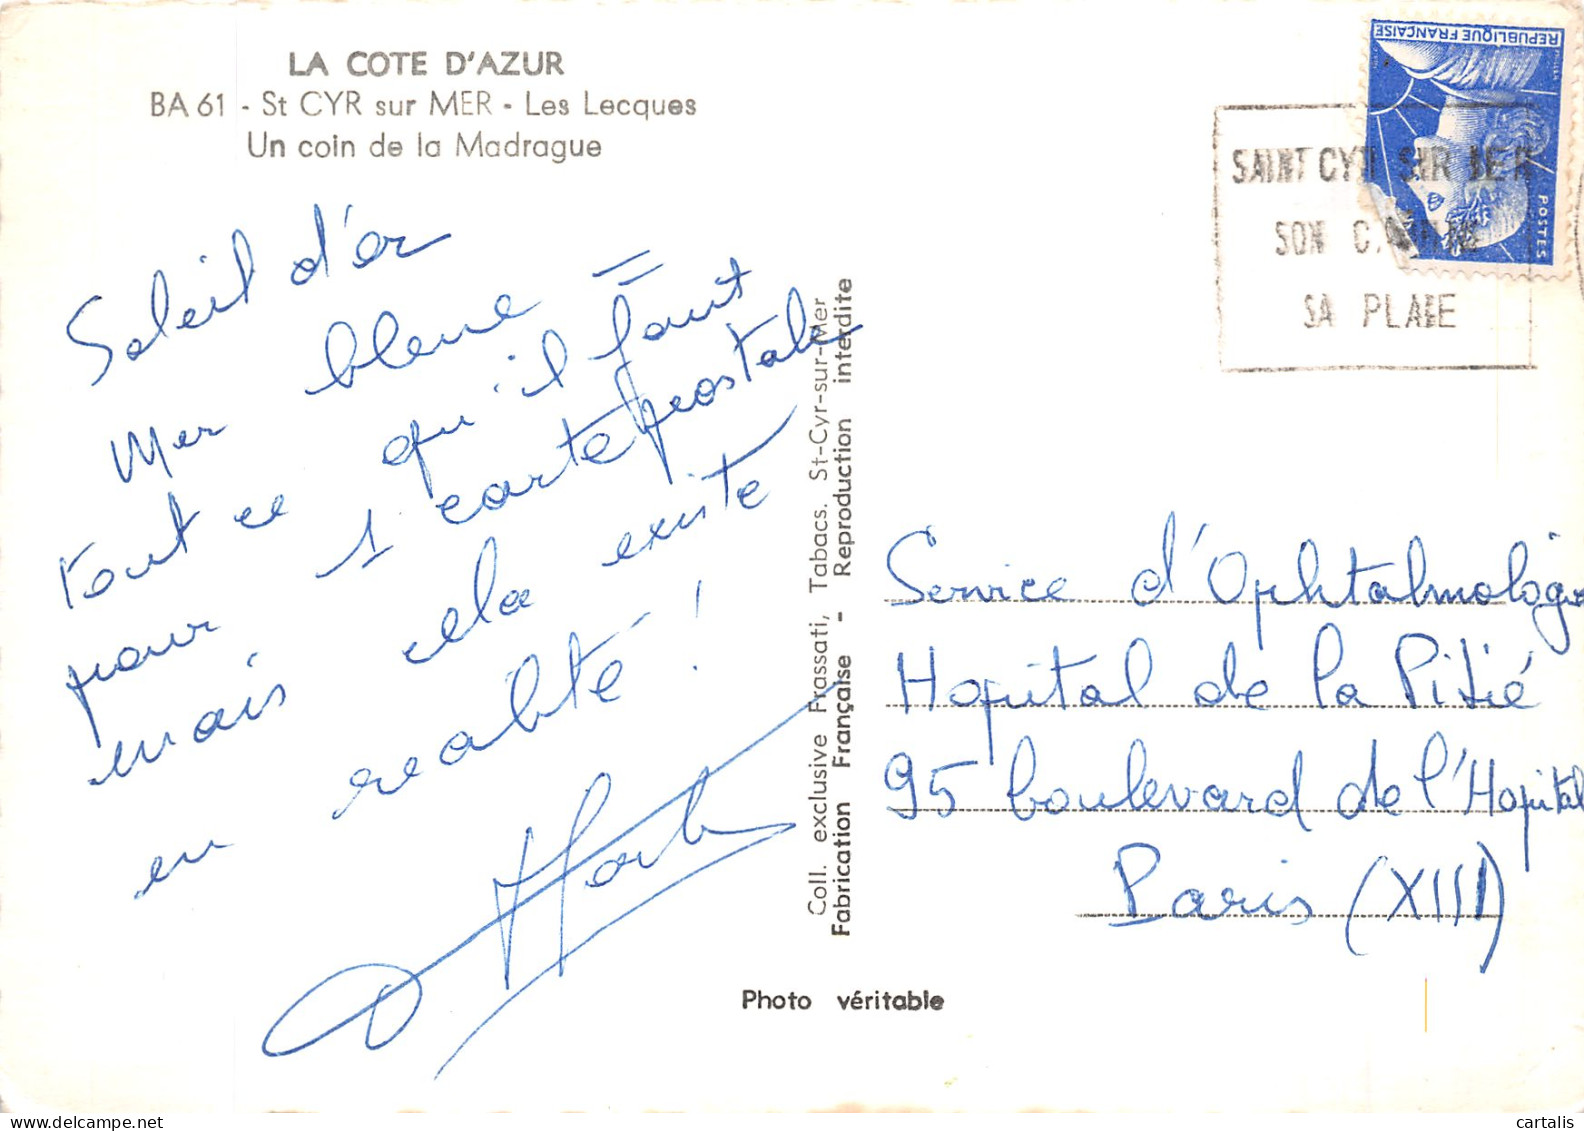 LA COTE D'AZUR
BA 61 - St CYR sur MER - Les Lecques
Un coin de la Madrague
Soleil d'or
Mer bleue =
tout ce qu'il faut
pour 1 carte postale
mais cela existe
en realité !
REPUBLIQUE FRANÇAISE
POSTES
SAINT CYR SUR MER
SON
SA PLAGE
Coll. exclusive Frassati, Tabacs. St-Cyr-sur-Mer
Fabrication Française - Reproduction interdite
Service d'Ophtalmologie
Hopital de la Pitié
95 boulevard de l'Hopital
Paris (XIII)
Photo véritable
cartalis